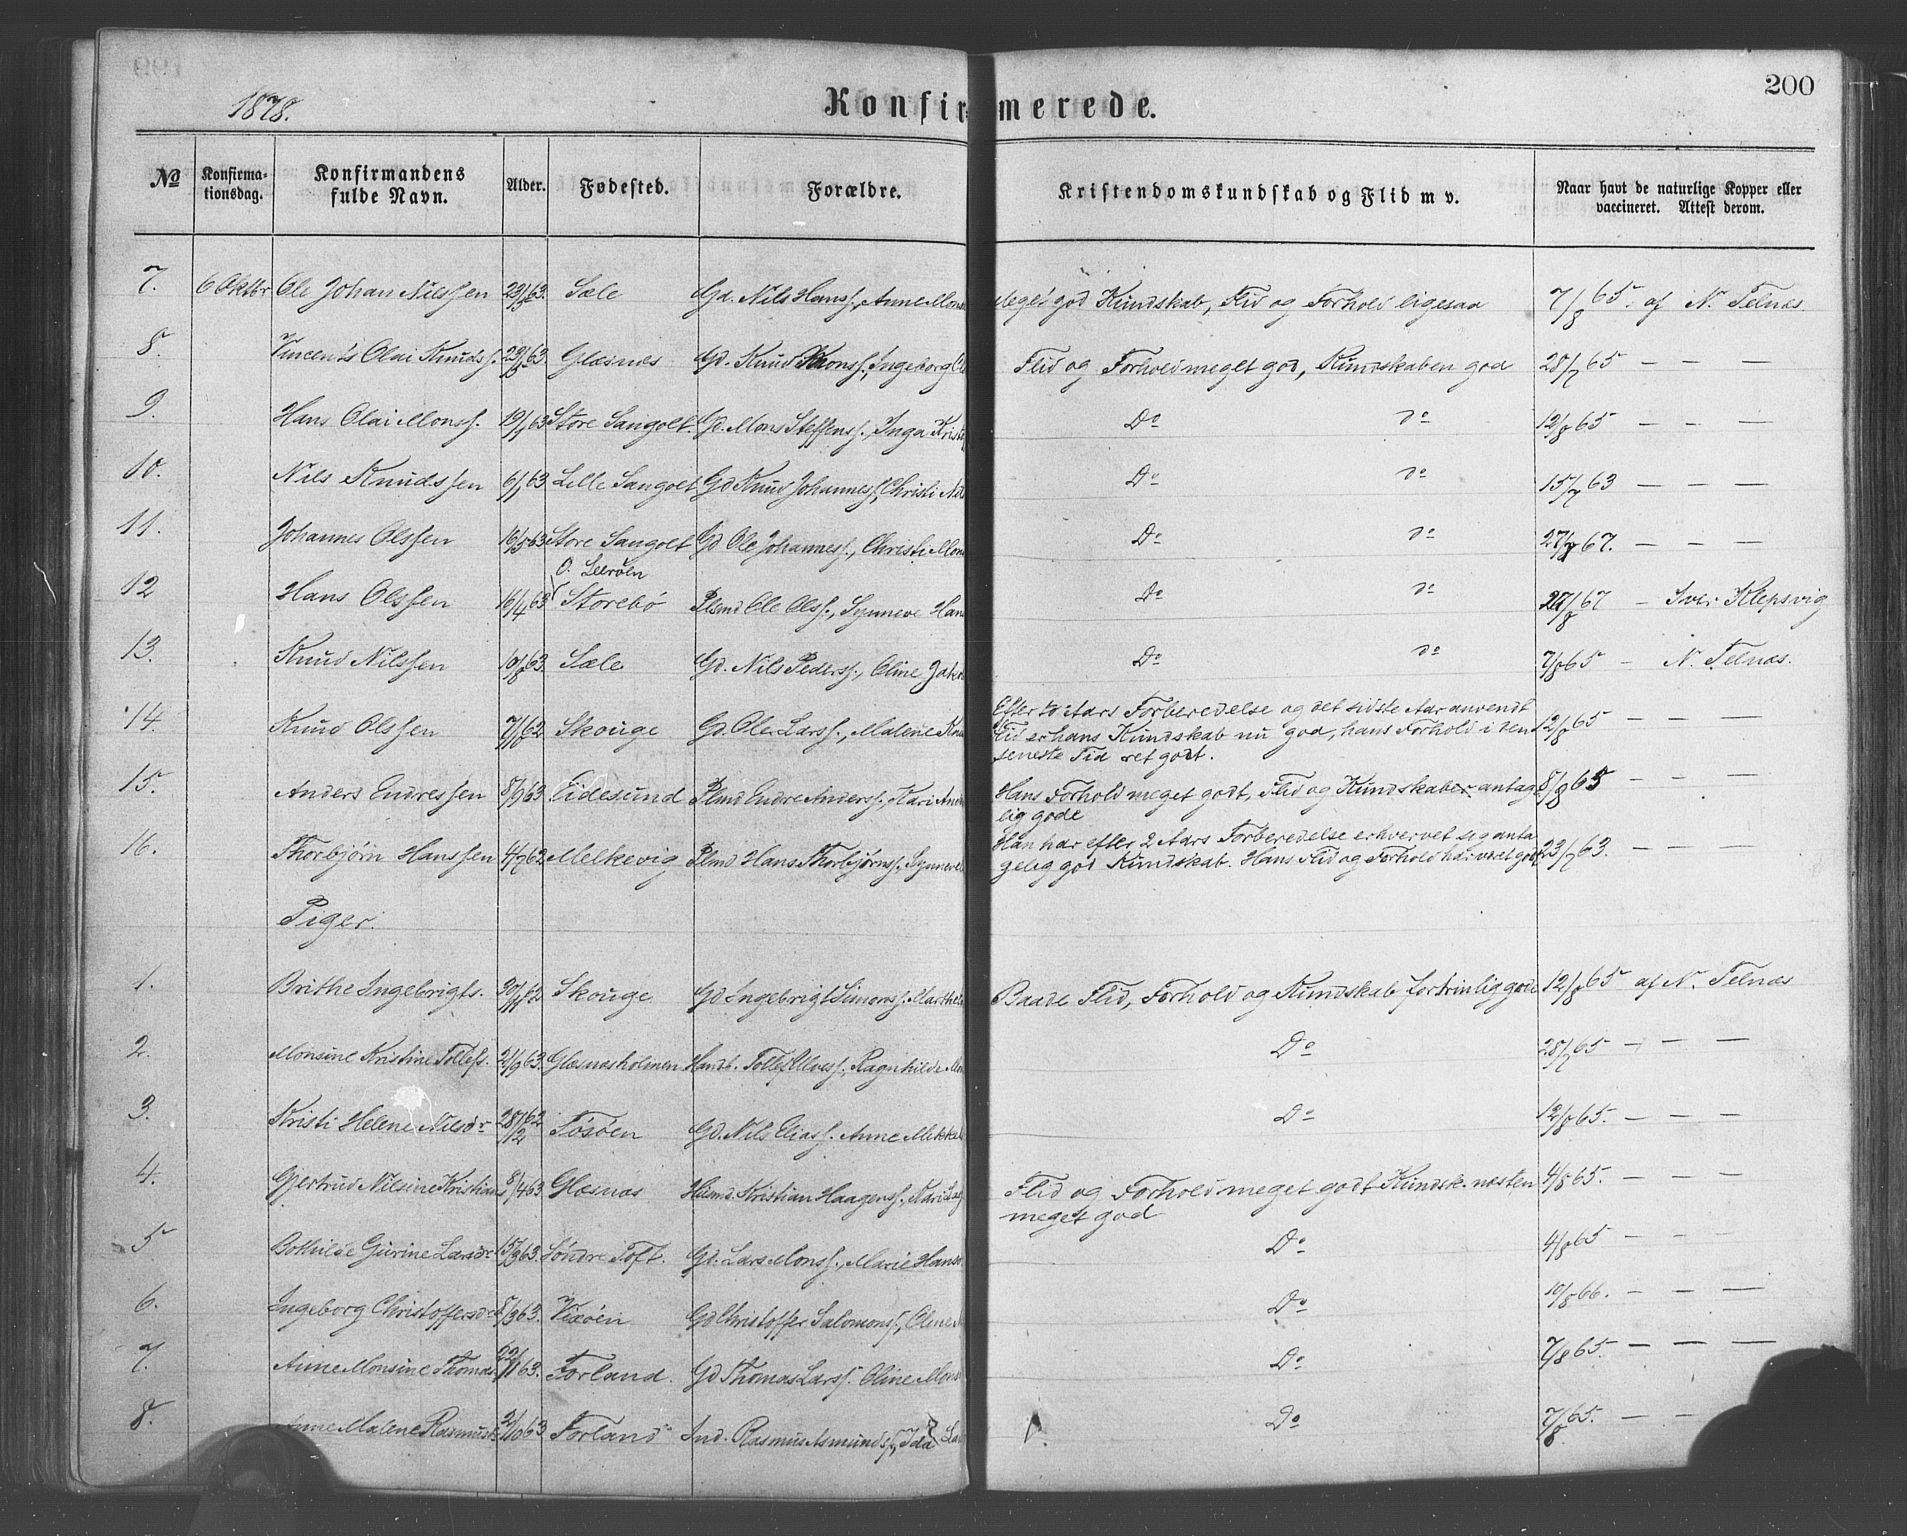 1878.
Konfirmerede.
200
No
Konfirma-
tionsdag.
Konfirmandens
fulde Navn.
Alder.
Fødested.
Forældre.
Kristendomskundskab og Flid m v.
Naar havt de naturlige Kopper eller
vaccineret. Attest derom.
7. 6 Oktbr Ole Johan Nilssen 63. Sæle Gd. Nils Hanss., Anne Mons meget god Kundskab, Flid og Forhold ligesaa 7/8 65. af N. Telnæs.
8. Vincents Olai Knudss. 63. Glæsnæs Gd. Knud Monss., Ingeborg Flid og Forhold meget god, Kundskaben god 28/7 65 — — —
9. Hans Olai Monss. 19/1 63 Store Sangolt. Gd. Mons Steffenss., Inga Krist Do do 12/8 65 — — —
10. Nils Knudssen 6/1 63 Lille Sangolt Gd Knud Johanness., Christi Nil Do do 15/7 63 — — —
11. Johannes Olssen 16/5 63 Store Sangolt Gd Ole Johanness., Christi Mons Do do 67. — — —
O. Leerøen
12 Hans Olssen 16/4 63 Storebø Plsmd Ole Olss., Synneve Hans Do do 67 — Iver Klepsvig
13. Knud Nilssen 10/8 63. Sæle Gd. Nils Pederss., Oline Jakob Do do 7/8 65 — N. Telnæs.
Efter to Aars Forberedelse og det sidste Aar anvendt
14. Knud Olssen 62. Skouge Gd. Ole Larss., Malene Knu Flid er hans Kundskab nu god, hans Forhold i den 12/8 65 — — —
seneste Tid ret godt.
15. Anders Endressen 8/9 63 Eidesund Plsmd Endre Anderss., Kari And Hans Forhold meget godt, Flid og Kundskaber antage 8/8 65 — — —
lig gode
Han har efter 2 Aars Forberedelse erhvervet sig anta
16. Thorbjørn Hanssen 4/7 62 Melkevig Plsmd Hans Thorbjørnss., Synneve gelig god Kundskab. Hans Flid og Forhold har været godt 23/7 63. — — —
Piger.
1. Brithe Ingebrigts. 30/11 62 Skouge Gd Ingebrigt Simonss., Marthe Baade Flid, Forhold og Kundskab fortrinlig gode 12/8 65 af N. Telnæs
2. Monsine Kristine Tollefs. 2/9 63. Glæsnæsholmen Tollef Ragnhilde Mon Do 28/7 65 — — —
3. Kristi Helene Nilsdr 28/12 62 Tøsøen Gd. Nils Eliass. Anne Mikkels Do 12/8 65. — — —
4. Gjertrud Nilsine Kristians 8/4 63 Glæsnæs Kristian Haagenss., Flid og Forhold meget godt Kundsk. næsten 4/8 65. — — —
meget god
5 Bothilde Gurine Larsdr 15/3 63. Søndre Toft. Gd. Lars Monss., Marie Hans Do 4/8 65 — — —
6. Ingeborg Christoffersdr 8/3 63. Vixøen Gd Christoffer Salomonss., Oline Do 10/8 66. — — —
7. Anne Monsine Thomas 22/11 63. Forland. Gd Thomas Larss. Oline Mons Do 7/8 65. — — —
8. Anne Malene Rasmusd 2/10 63 Forland Ind. Rasmus Asmundss., Ida Lar Do 7/8 65. — — —